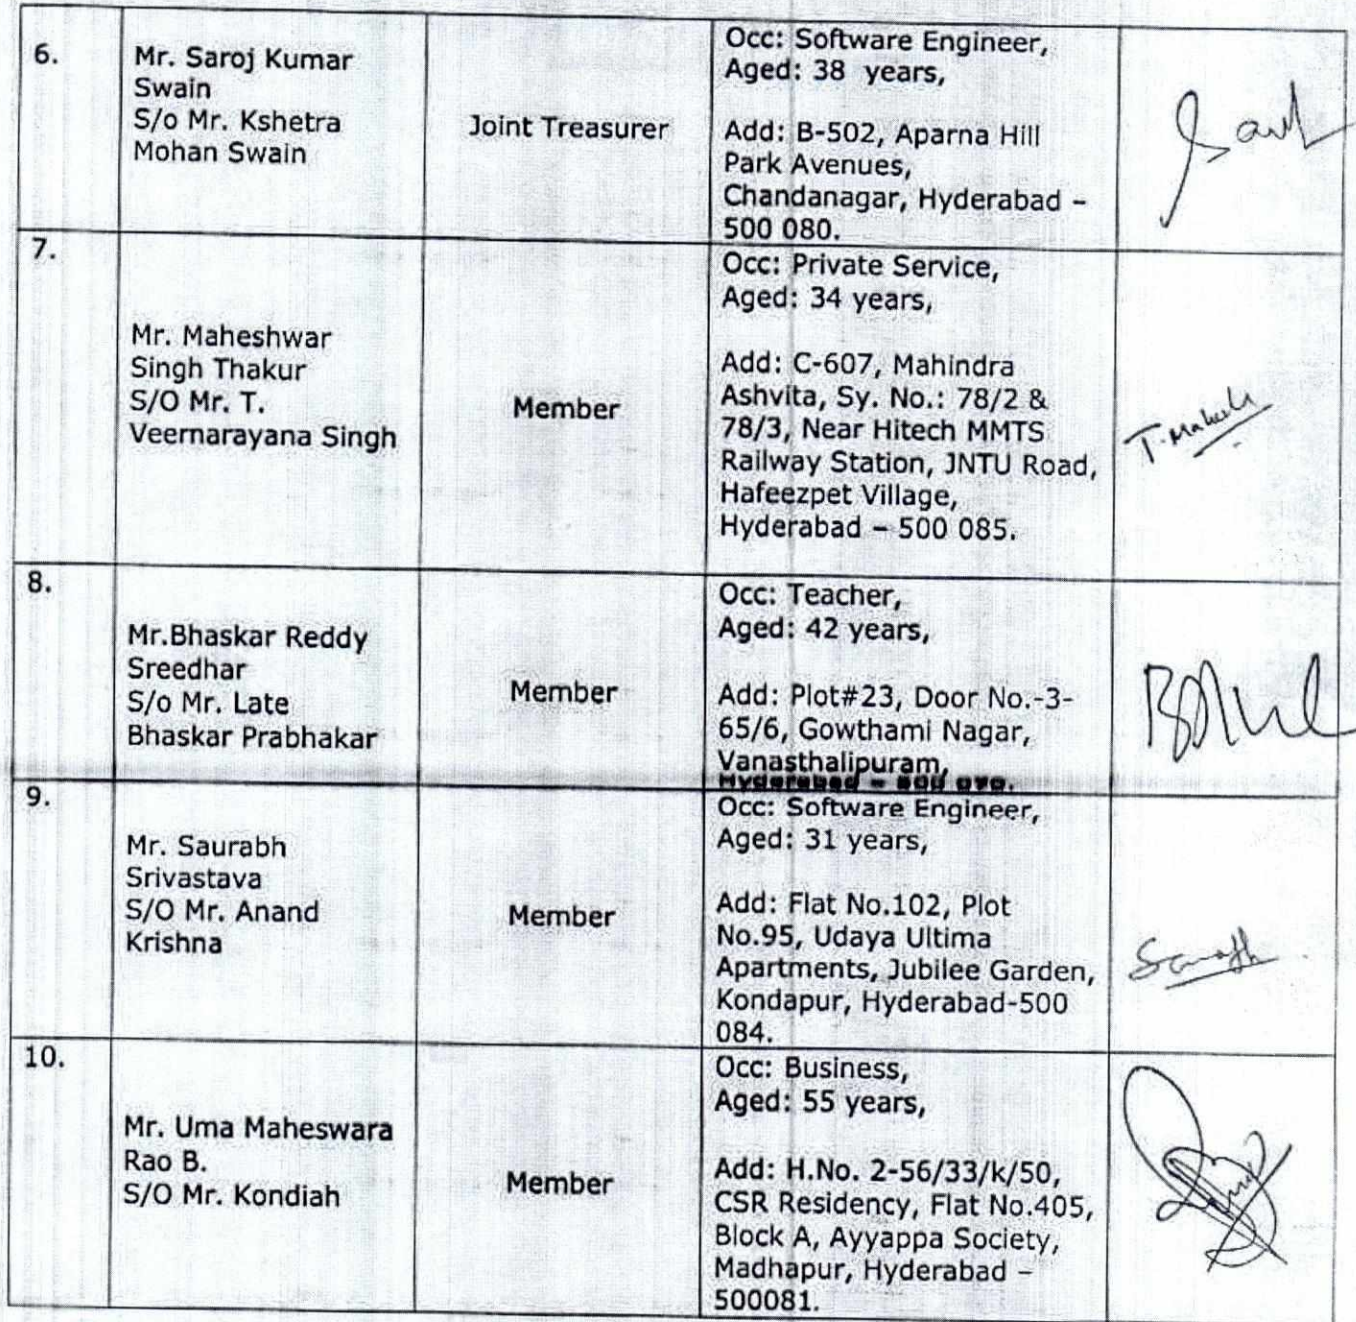 6.
Mr. Saroj Kumar
Swain
S/o Mr. Kshetra
Mohan Swain
Joint Treasurer
Occ: Software Engineer,
Aged: 38 years,
Add: B-502, Aparna Hill
Park Avenues,
Chandanagar, Hyderabad –
500 080.
7.
Mr. Maheshwar
Singh Thakur
S/O Mr. T.
Veernarayana Singh
Member
Occ: Private Service,
Aged: 34 years,
Add: C-607, Mahindra
Ashvita, Sy. No.: 78/2 &
78/3, Near Hitech MMTS
Railway Station, JNTU Road,
Hafeezpet Village,
Hyderabad – 500 085.
8.
Mr.Bhaskar Reddy
Sreedhar
S/o Mr. Late
Bhaskar Prabhakar
Member
Occ: Teacher,
Aged: 42 years,
Add: Plot#23, Door No.-3-
65/6, Gowthami Nagar,
Vanasthalipuram,
Hyderabad –
9.
Mr. Saurabh
Srivastava
S/O Mr. Anand
Krishna
Member
Occ: Software Engineer,
Aged: 31 years,
Add: Flat No.102, Plot
No.95, Udaya Ultima
Apartments, Jubilee Garden,
Kondapur, Hyderabad-500
084.
10.
Mr. Uma Maheswara
Rao B.
S/O Mr. Kondiah
Member
Occ: Business,
Aged: 55 years,
Add: H.No. 2-56/33/k/50,
CSR Residency, Flat No.405,
Block A, Ayyappa Society,
Madhapur, Hyderabad –
500081.